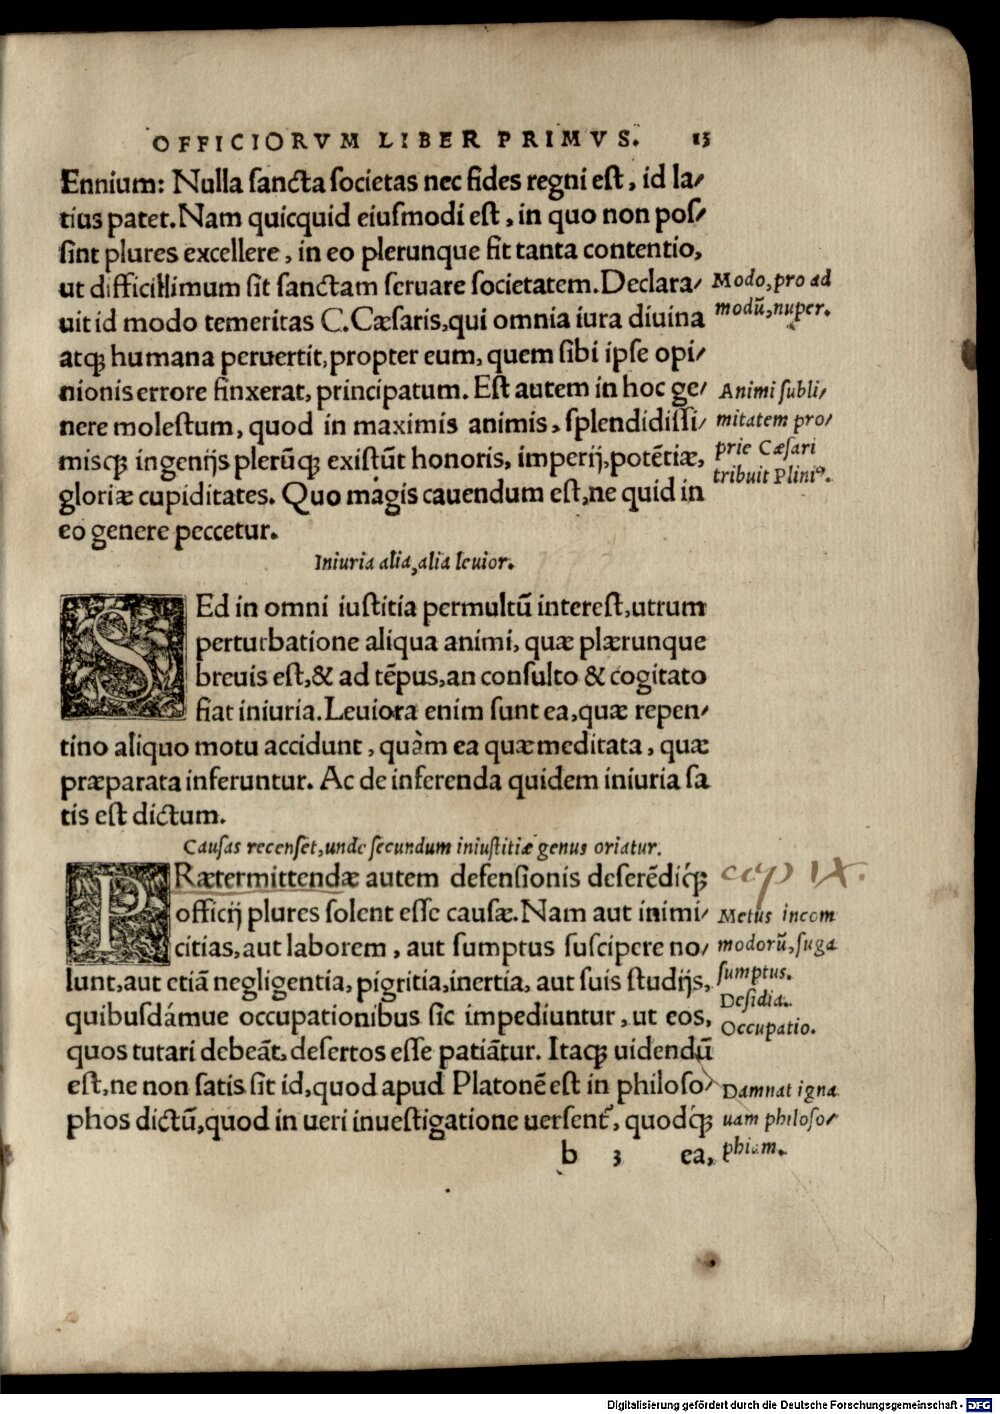 OFFICIORVM LIBER PRIMVS. 13
Ennium: Nulla ſancta ſocietas nec fides regni eſt, id la/
tius patet. Nam quicquid eiuſmodi eſt, in quo non poſ/
ſint plures excellere, in eo plerunque fit tanta contentio,
ut difficillimum ſit ſanctam ſeruare ſocietatem. Declara/
uit id modo temeritas C. Cæſaris, qui omnia iura diuina
atq; humana peruertit, propter eum, quem ſibi ipſe opi/
nionis errore finxerat, principatum. Eſt autem in hoc ge/
nere moleſtum, quod in maximis animis, ſplendidiſſi/
misq; ingenijs plerūq; exiſtūt honoris, imperij, potētiæ,
gloriæ cupiditates. Quo magis cauendum eſt, ne quid in
eo genere peccetur.
Modo, pro ad
modū, nuper.
Animi ſubli/
mitatem pro/
prie Cæſari
tribuit Pliniꝰ.
Iniuria alia, alia leuior.
SEd in omni iuſtitia permultū intereſt, utrum
perturbatione aliqua animi, quæ plærunque
breuis eſt, & ad tēpus, an conſulto & cogitato
fiat iniuria. Leuiora enim ſunt ea, quæ repen/
tino aliquo motu accidunt, quàm ea quæ meditata, quæ
præparata inferuntur. Ac de inferenda quidem iniuria ſa
tis eſt dictum.
Cauſas recenſet, unde ſecundum iniuſtitiæ genus oriatur.
PRætermittendæ autem defenſionis deferēdiq́;
officij plures ſolent eſſe cauſæ. Nam aut inimi/
citias, aut laborem, aut ſumptus ſuſcipere no/
lunt, aut etiā negligentia, pigritia, inertia, aut ſuis ſtudijs,
quibuſdámue occupationibus ſic impediuntur, ut eos,
quos tutari debeāt, deſertos eſſe patiātur. Itaq; uidendū
eſt, ne non ſatis ſit id, quod apud Platonē eſt in philoſo/
phos dictū, quod in ueri inueſtigatione uerſentᷣ, quodq́;
cap IX.
Metus incom
modorū, fuga
ſumptus.
Deſidia.
Occupatio.
Damnat igna
uam philoſo/
phiam.
b 3 ea,
Digitalisierung gefördert durch die Deutsche Forschungsgemeinschaft - DFG